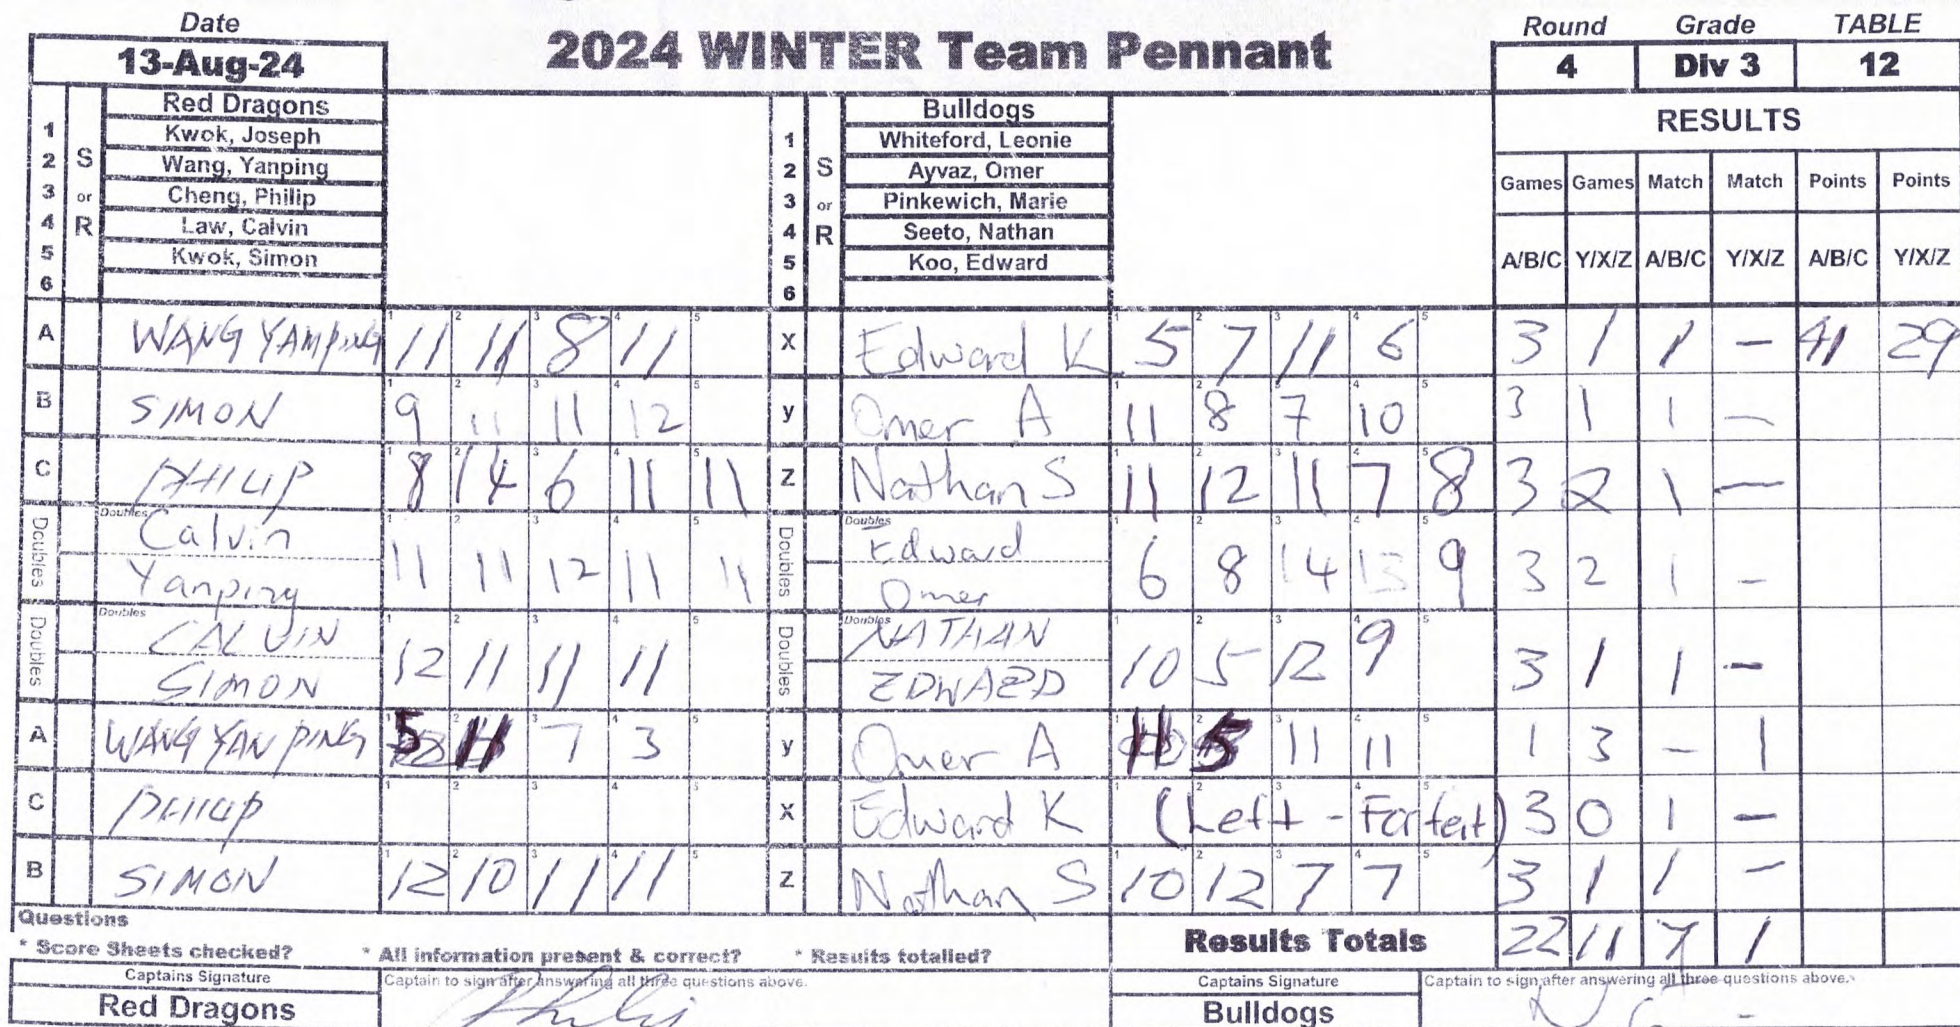 Date
2024 WINTER Team Pennant
Round Grade TABLE
13-Aug-24
4 Div 3 12
Red Dragons
Bulldogs
RESULTS
1 Kwok, Joseph
2 Wang, Yanping
3 Cheng, Philip
4 Law, Calvin
5 Kwok, Simon
6
S or R
1 Whiteford, Leonie
2 Ayvaz, Omer
3 Pinkewich, Marie
4 Seeto, Nathan
5 Koo, Edward
6
S or R
Games Games Match Match Points Points
A/B/C Y/X/Z A/B/C Y/X/Z A/B/C Y/X/Z
A WANG YAMPING 11 11 8 11 X Edward K 5 7 11 6 3 1 1 - 41 29
B SIMON 9 11 11 12 y Omer A 11 8 7 10 3 1 1 -
C PHILIP 8 14 6 11 11 Z Nathan S 11 12 11 7 8 3 2 1 -
Doubles Calvin Yanping 11 11 12 11 11 Doubles Edward Omer 6 8 14 13 9 3 2 1 -
Doubles CALVIN SIMON 12 11 11 11 Doubles NATHAN EDWARD 10 5 12 9 3 1 1 -
A WANG YAN PING 5 11 7 3 y Omer A 11 5 11 11 1 3 - 1
C PHILIP X Edward K (Left - Forfeit) 3 0 1 -
B SIMON 12 10 11 11 Z Nathan S 10 12 7 7 3 1 1 -
Questions
* Score Sheets checked? * All information present & correct? * Results totalled?
Results Totals 22 11 7 1
Captains Signature
Captain to sign after answering all three questions above.
Captains Signature
Captain to sign after answering all three questions above.
Red Dragons
Bulldogs